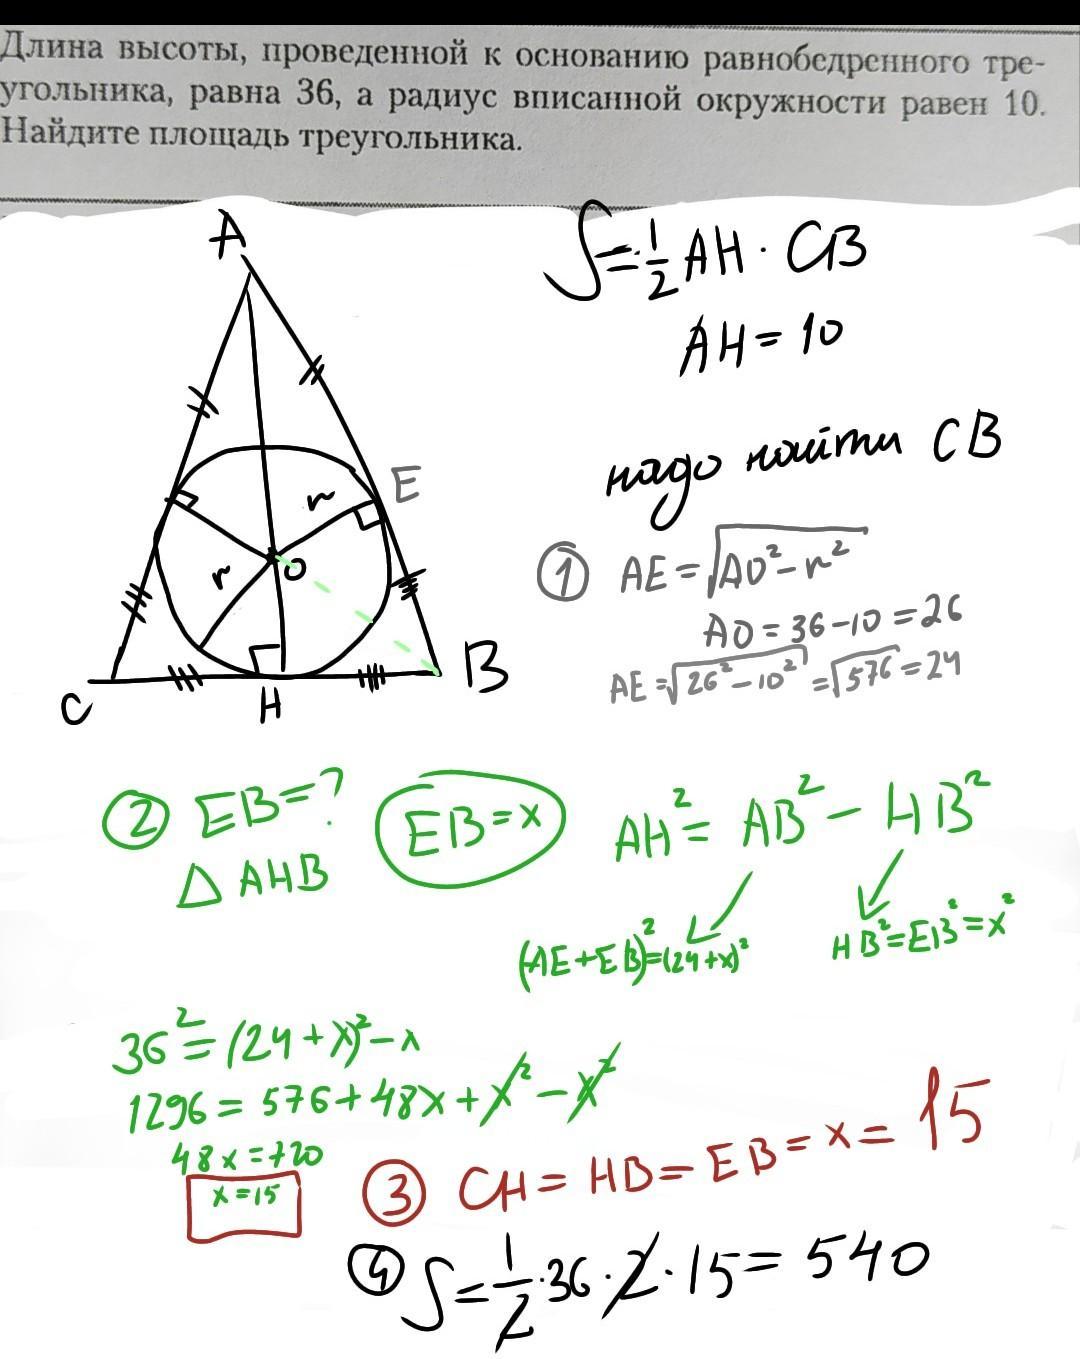 Длина высоты, проведенной к основанию равнобедренного тре-
угольника, равна 36, а радиус вписанной окружности равен 10.
Найдите площадь треугольника.
A
S = 1/2 AH · CB
AH = 10
надо найти CB
E
r
r
O
C
H
B
① AE = √AO² - r²
AO = 36 - 10 = 26
AE = √26² - 10² = √576 = 24
② EB = ?
EB = x
AH² = AB² - HB²
△ AHB
(AE + EB)² = (24 + x)²
HB² = EB² = x²
36² = (24 + x)² - x
1296 = 576 + 48x + x² - x²
48x = 720
x = 15
③ CH = HB = EB = x = 15
④ S = 1/2 · 36 · 2 · 15 = 540